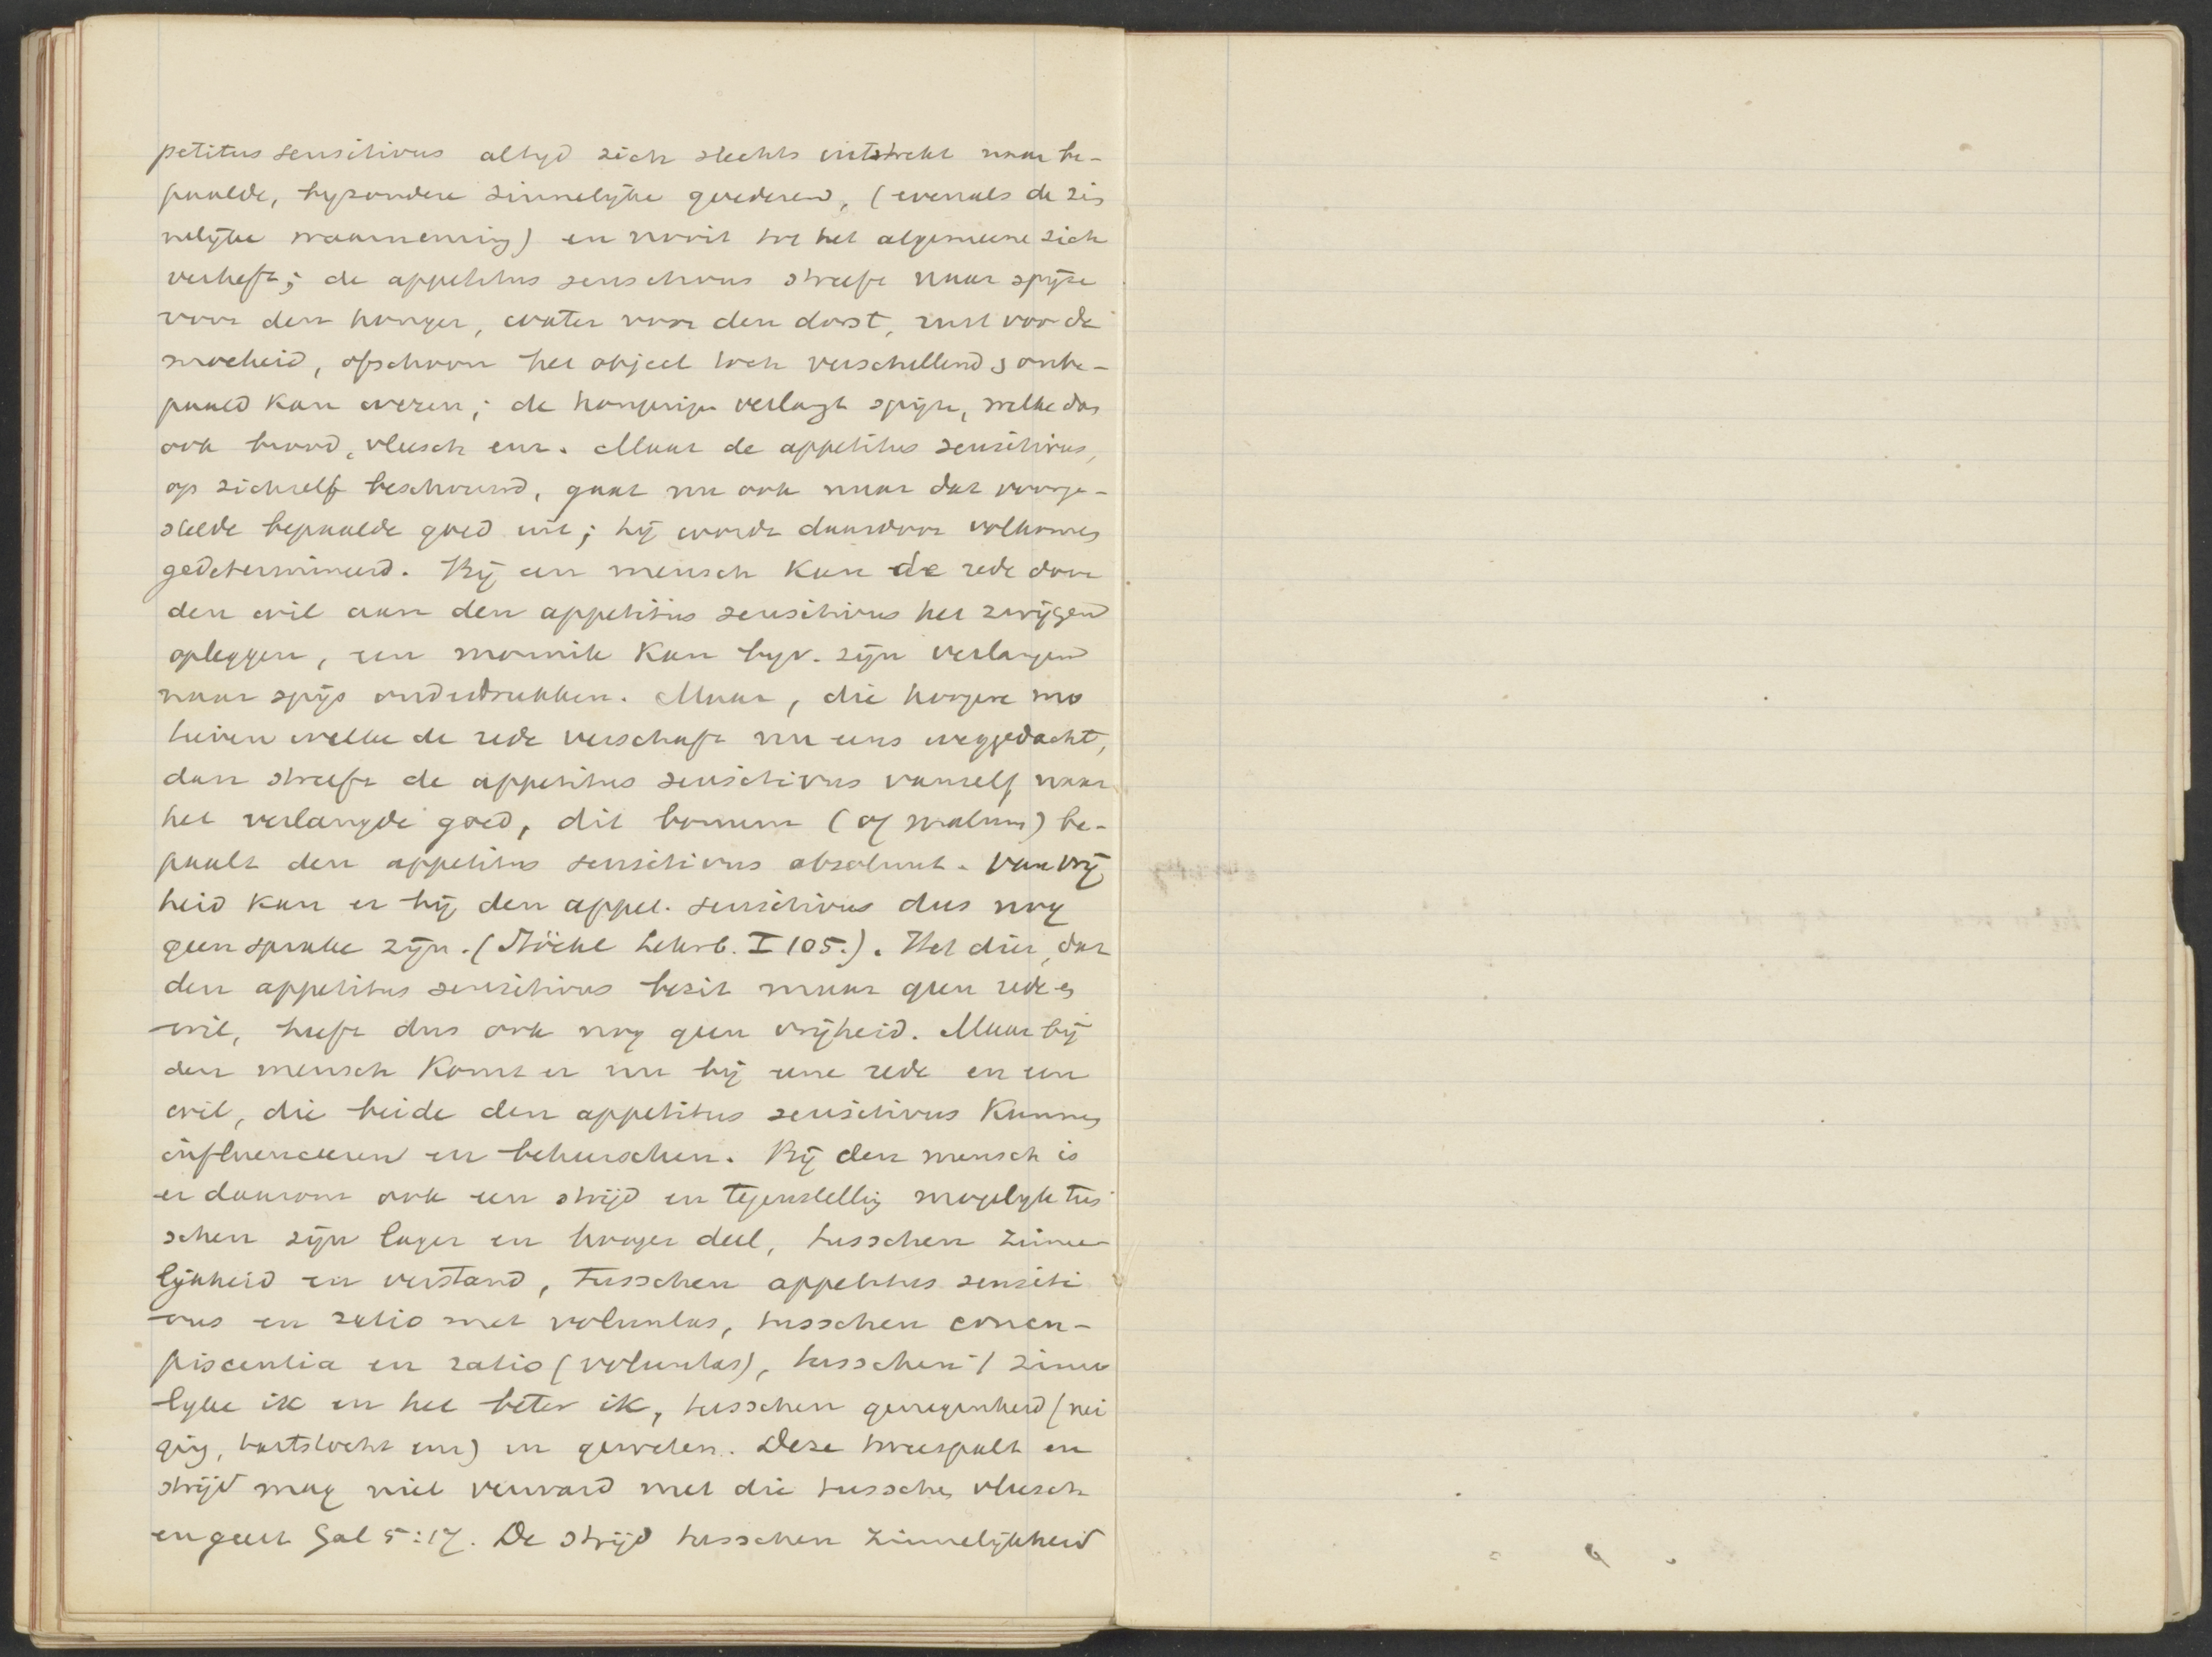 petitus sensitivus altyd zich slechts uitstrekt naar be-
paalde, byzondere zinnelyke goederen, (evenals de zin
nelijke waarneming) en nooit tot het algemeene zich
verheft; de appetitus sensitivus streeft naar spijze
voor den honger, water voor den dorst, rust voor de
moeheid, ofschoon het object toch verschillend & onbe-
paald kan wezen; de hongerige verlangt spijze, welke dan
ook brood, vleesch enz. Maar de appetitus sensitivus,
op zichzelf beschouwd, gaat nu ook naar dat voorge-
stelde bepaalde goed uit; hij wordt daardoor volkomen
gedetermineerd. Bij een mensch kan de rede door
den wil aan den appetitus sensitivus het zwijgen
opleggen, een monnik kan byv. zijn verlangen
naar spijs onderdrukken. Maar, die hoogere mo
tieven welke de rede verschaft nu eens weggedacht,
dan streeft de appetitus sensitivus vanzelf naar
het verlangde goed, dit bonum (of malum) be-
paalt den appetitus sensitivus absoluut. Van vrij
heid kan er bij den appet. sensitivus dus nog
geen sprake zijn. (Stöckl Lehrb. I 105.). Het dier, dat
den appetitus sensitivus bezit maar geen rede en
wil, heeft dus ook nog geen vrijheid. Maar bij
den mensch komt er nu bij eene rede en een
wil, die beide den appetitus sensitivus kunnen
influenceeren en beheerschen. Bij den mensch is
er daarom ook een strijd en tegenstelling mogelyk tus
schen zijn lager en hooger deel, tusschen zinne-
lijkheid en verstand, tusschen appetitus sensiti
vus en ratio met voluntas, tusschen concu-
piscentia en ratio (voluntas), tusschen 't zinne
lyke ik en het beter ik, tusschen genegenheid (nei
ging, hartstocht enz) en geweten. Deze tweespalt en
strijd mag niet verward met die tusschen vleesch
en geest Gal 5:17. De strijd tusschen zinnelijkheid